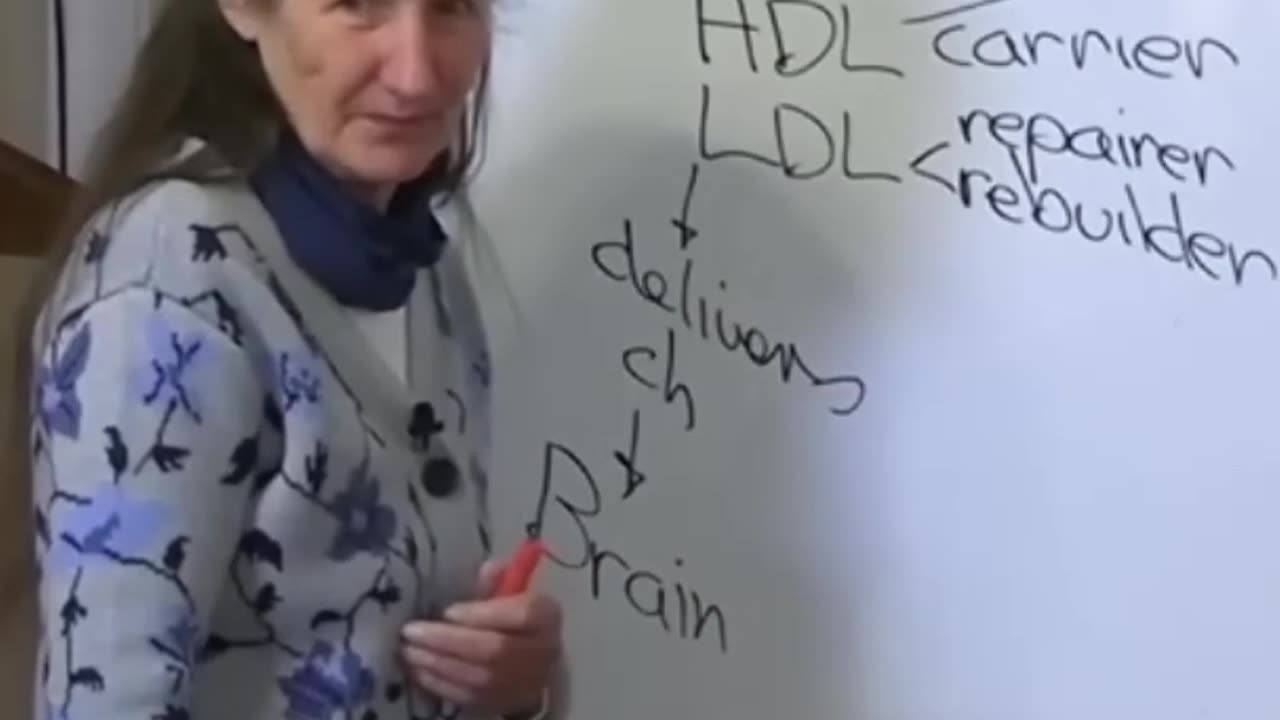 HDL carrier
LDL < repairer
rebuilder
delivers
ch
Brain